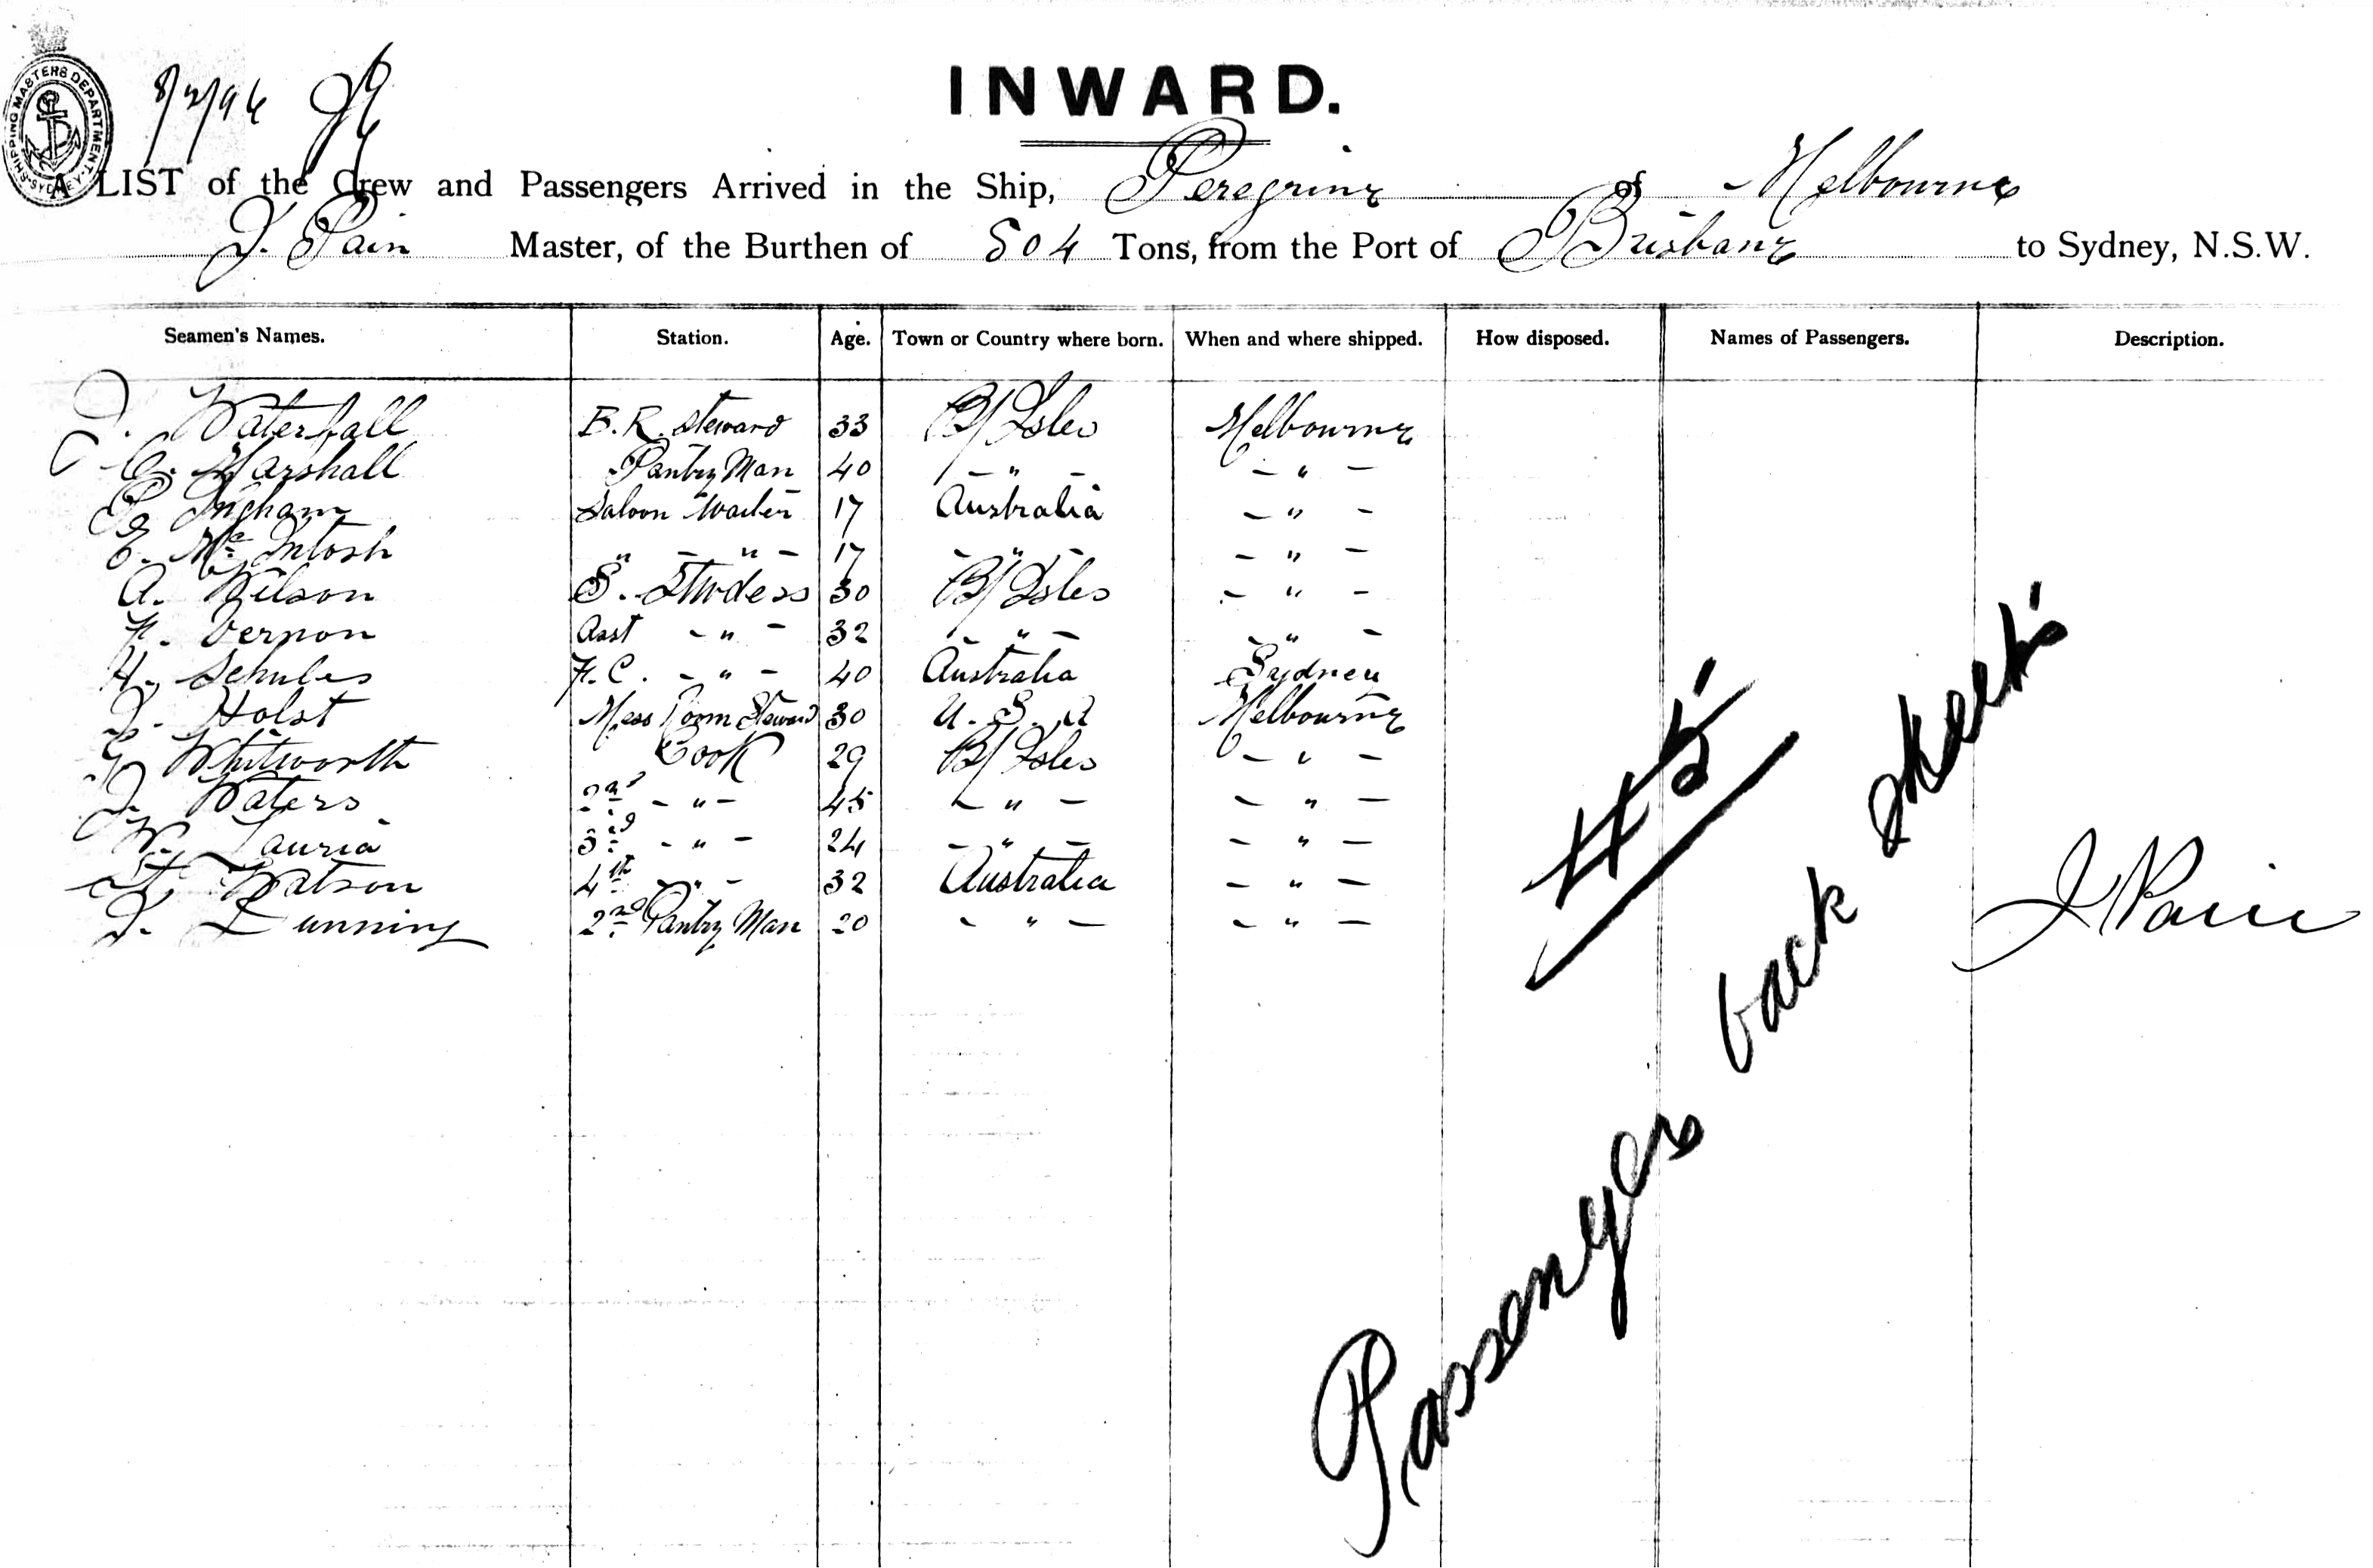 SHIPPING MASTERS DEPARTMENT
SYDNEY
8/2/96
INWARD.
A LIST of the Crew and Passengers Arrived in the Ship, Peregrine of Melbourne
J. Pain Master, of the Burthen of 804 Tons, from the Port of Brisbane to Sydney, N.S.W.
Seamen's Names. Station. Age. Town or Country where born. When and where shipped. How disposed. Names of Passengers. Description.
J. Waterfall B.R. Steward 33 B/ Isles Melbourne
C. Marshall Pantry Man 40 - " - - " -
Ingham Saloon Waiter 17 Australia - " -
E. Mc Intosh " - " - 17 - " - - " -
A. Wilson S. Stwdess 30 B/ Isles - " -
F. Vernon Asst - " - 32 - " - - " -
H. Schules F.C. - " - 40 Australia Sydney
J. Holst Mess Room Steward 30 U.S.A Melbourne
Whitworth Cook 29 B/ Isles - " -
J. Waters 2nd - " - 45 - " - - " -
W. Lauria 3rd - " - 24 - " - - " -
Watson 4th - " - 32 Australia - " -
J. Dunning 2nd Pantry Man 20 - " - - " -
J Pain
Passenges back sheet